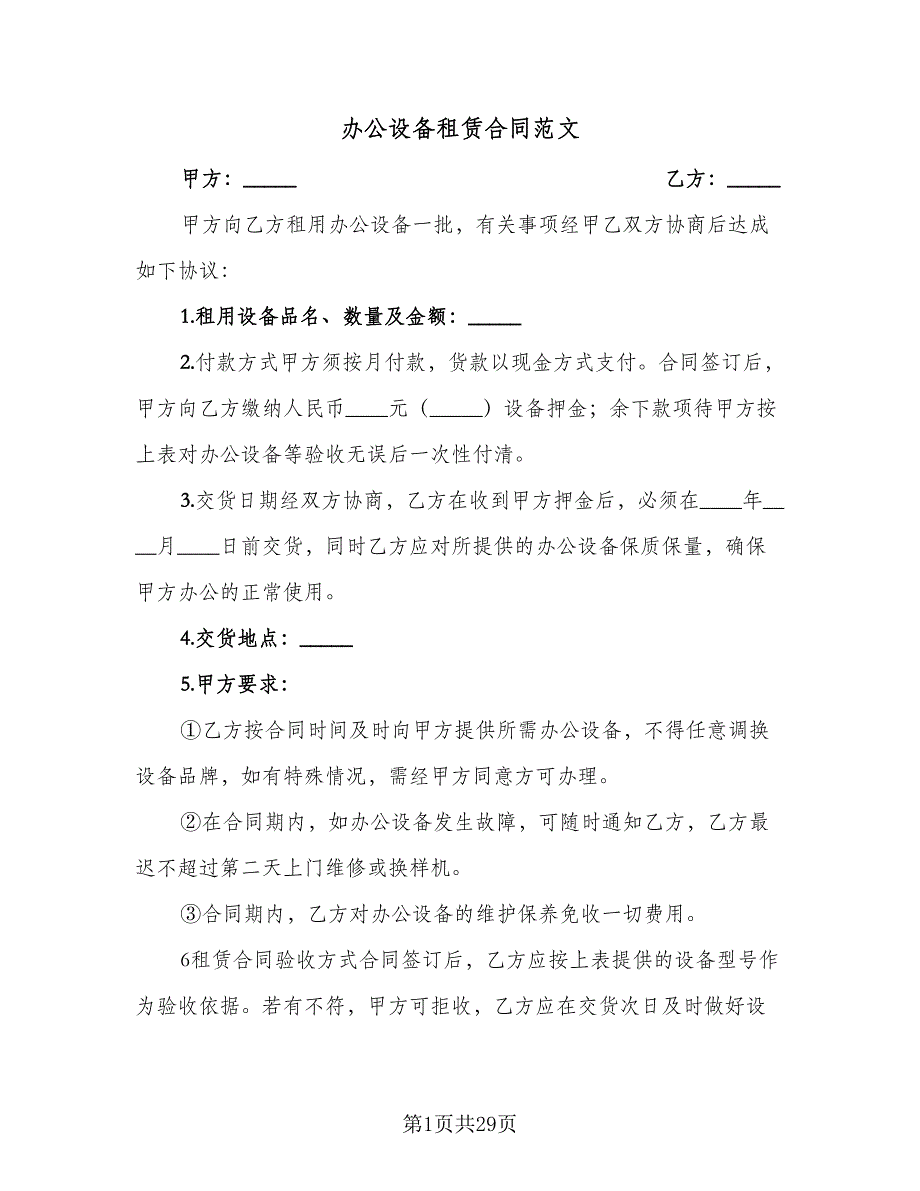 办公设备租赁合同范文
甲方：_____ 乙方：_____
甲方向乙方租用办公设备一批，有关事项经甲乙双方协商后达成
如下协议：
1.租用设备品名、数量及金额：_____
2.付款方式甲方须按月付款，货款以现金方式支付。合同签订后，
甲方向乙方缴纳人民币____元（_____）设备押金；余下款项待甲方按
上表对办公设备等验收无误后一次性付清。
3.交货日期经双方协商，乙方在收到甲方押金后，必须在____年__
__月____日前交货，同时乙方应对所提供的办公设备保质保量，确保
甲方办公的正常使用。
4.交货地点：_____
5.甲方要求：
①乙方按合同时间及时向甲方提供所需办公设备，不得任意调换
设备品牌，如有特殊情况，需经甲方同意方可办理。
②在合同期内，如办公设备发生故障，可随时通知乙方，乙方最
迟不超过第二天上门维修或换样机。
③合同期内，乙方对办公设备的维护保养免收一切费用。
6租赁合同验收方式合同签订后，乙方应按上表提供的设备型号作
为验收依据。若有不符，甲方可拒收，乙方应在交货次日及时做好设
第1页共29页